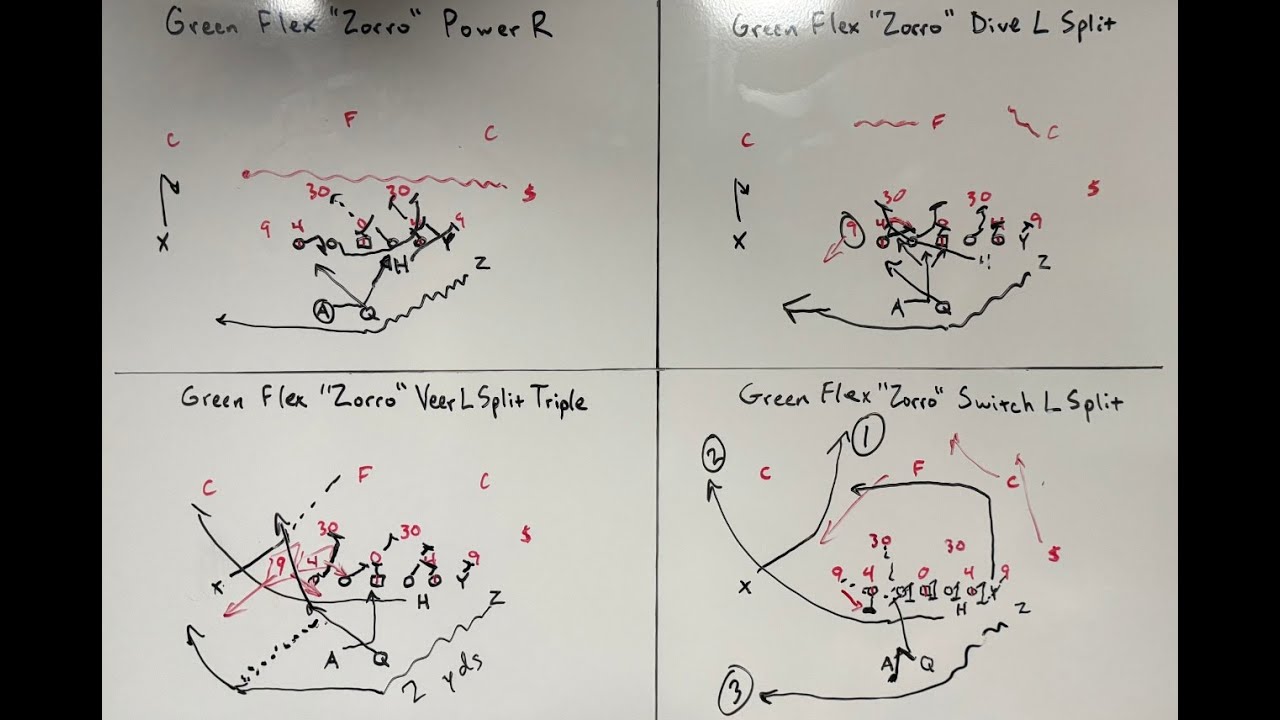 Green Flex "Zorro" Power R
F
C
C
30
30
S
9
4
0
4
9
X
Y
H
Z
A
Q
Green Flex "Zorro" Dive L Split
F
C
C
S
30
30
9
4
0
4
9
X
Y
H
Z
A
Q
Green Flex "Zorro" Veer L Split Triple
F
C
C
30
30
S
9
4
0
4
9
X
Y
H
Z
A
Q
2 yds
Green Flex "Zorro" Switch L Split
1
2
F
C
C
30
30
S
9
4
0
4
9
X
Y
H
Z
A
Q
3